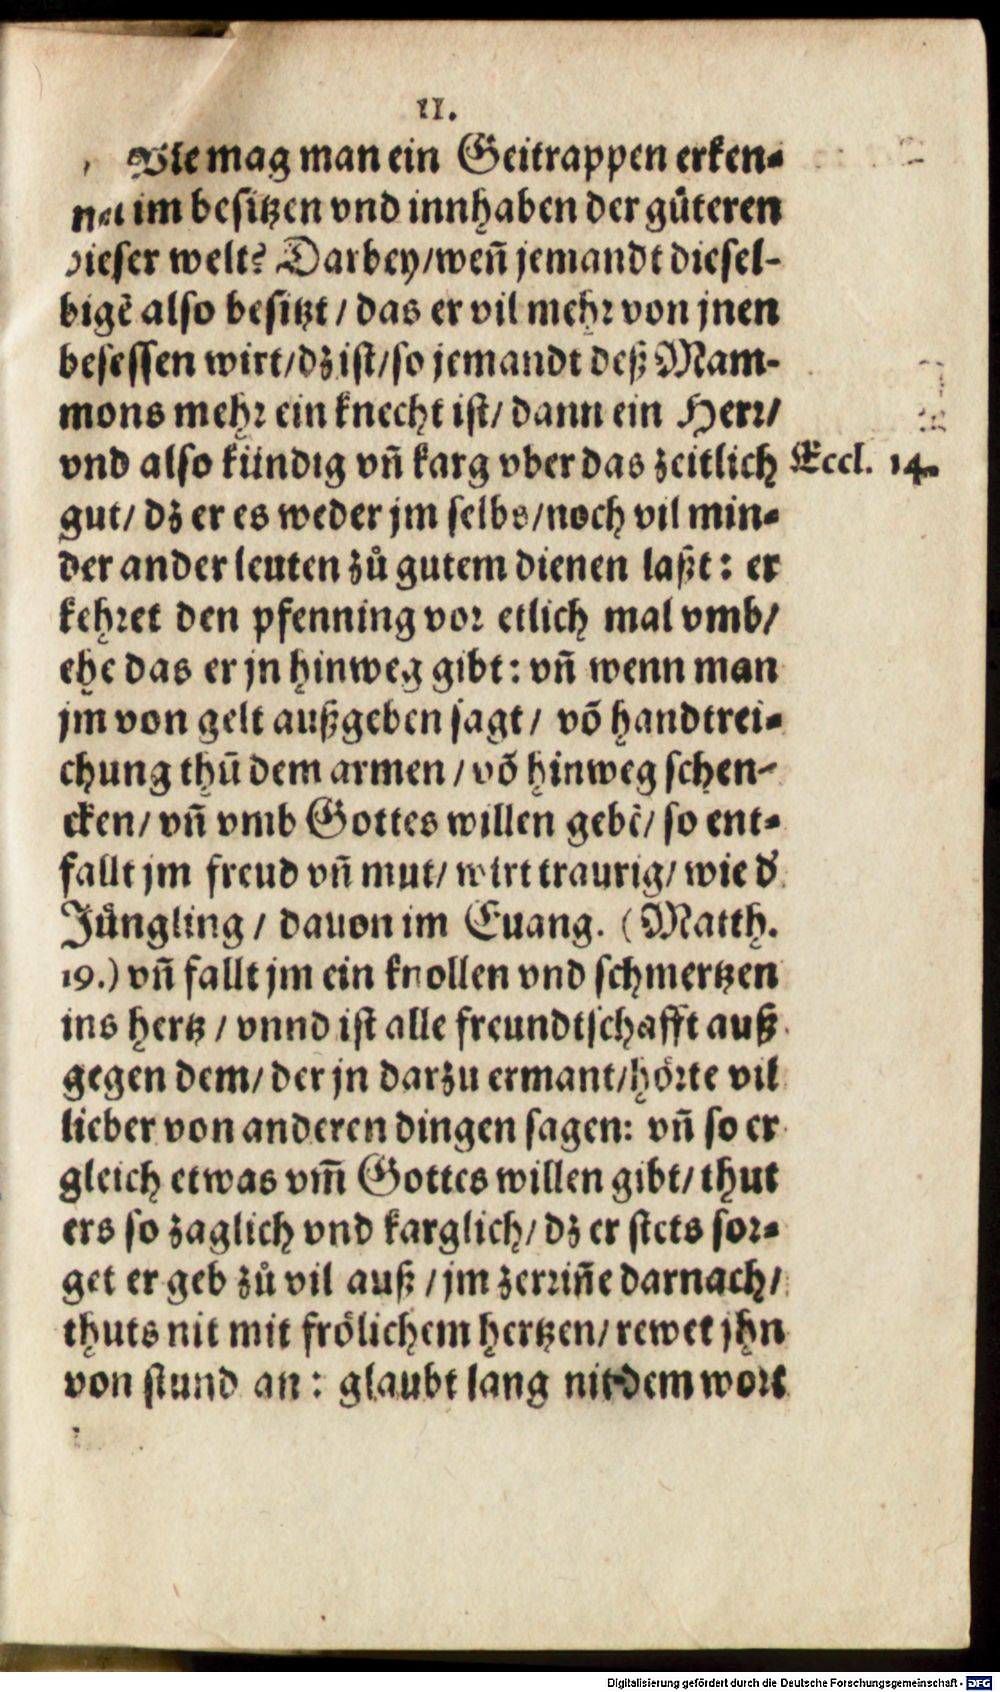 II.
Wie mag man ein Geitrappen erken-
nen im besitzen vnd innhaben der gůteren
dieser welt? Darbey/weñ jemandt diesel-
bigẽ also besitzt / das er vil mehr von jnen
besessen wirt/dz ist/so jemandt deß Mam-
mons mehr ein knecht ist/ dann ein Herr/
vnd also kündig vñ karg vber das zeitlich Eccl. 14.
gut/ dz er es weder jm selbs/noch vil min-
der ander leuten zů gutem dienen laßt: er
kehret den pfenning vor etlich mal vmb/
ehe das er jn hinweg gibt: vñ wenn man
jm von gelt außgeben sagt/ võ handtrei-
chung thũ dem armen / võ hinweg schen-
cken/ vñ vmb Gottes willen gebẽ/ so ent-
fallt jm freud vñ mut/ wirt traurig/ wie d'
Jůngling / dauon im Euang. (Matth.
19.) vñ fallt jm ein knollen vnd schmertzen
ins hertz / vnnd ist alle freundtschafft auß
gegen dem/ der jn darzu ermant/hörte vil
lieber von anderen dingen sagen: vñ so er
gleich etwas vm̃ Gottes willen gibt/ thut
ers so zaglich vnd karglich/ dz er stets sor-
get er geb zů vil auß / jm zerriñe darnach/
thuts nit mit frölichem hertzen/ rewet jhn
von stund an: glaubt lang nit dem wort
Digitalisierung gefördert durch die Deutsche Forschungsgemeinschaft - DFG